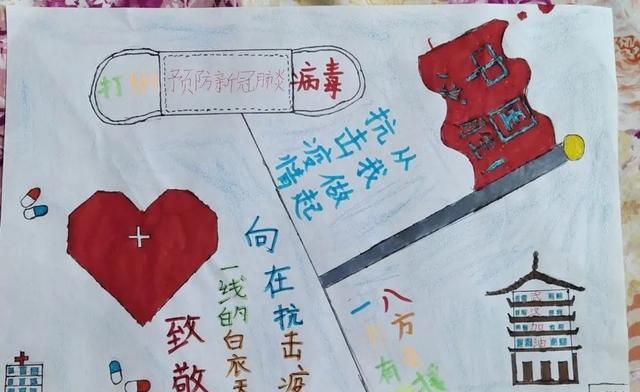 打
预防新冠肺炎
病毒
中
医
抗击疫情
从我做起
向在抗击疫
一线的白衣天
致敬
一方有
八方支援
武汉加油